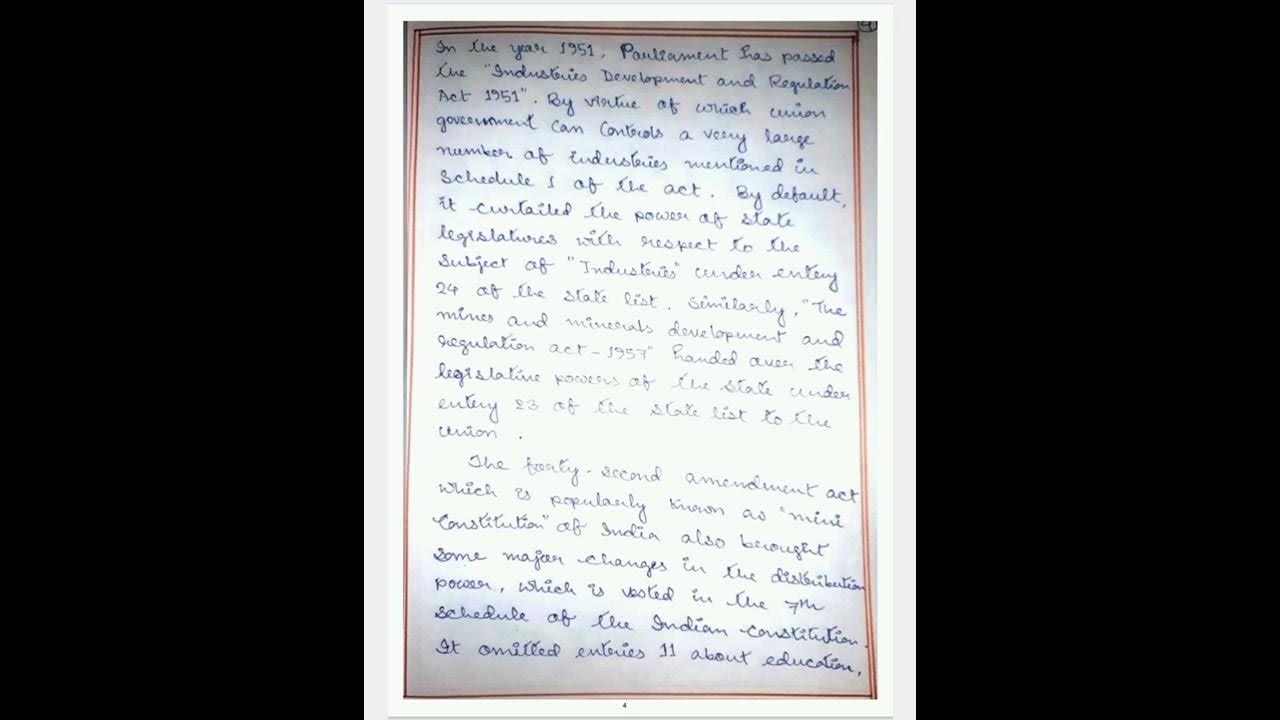 4
In the year 1951, Parliament has passed
the "Industries Development and Regulation
Act 1951". By virtue of which union
government can Controls a very large
number of industries mentioned in
Schedule 1 of the act. By default,
it curtailed the power of state
legislatures with respect to the
Subject of "Industries" under entry
24 of the state list. Similarly, "The
mines and minerals development and
regulation act - 1957" handed over the
legislative powers of the state under
entry 23 of the state list to the
union.
The forty-second amendment act
which is popularly known as "mini
Constitution" of India also brought
some major changes in the distribution
power, which is vested in the 7th
schedule of the Indian Constitution.
It omitted entries 11 about education,
4